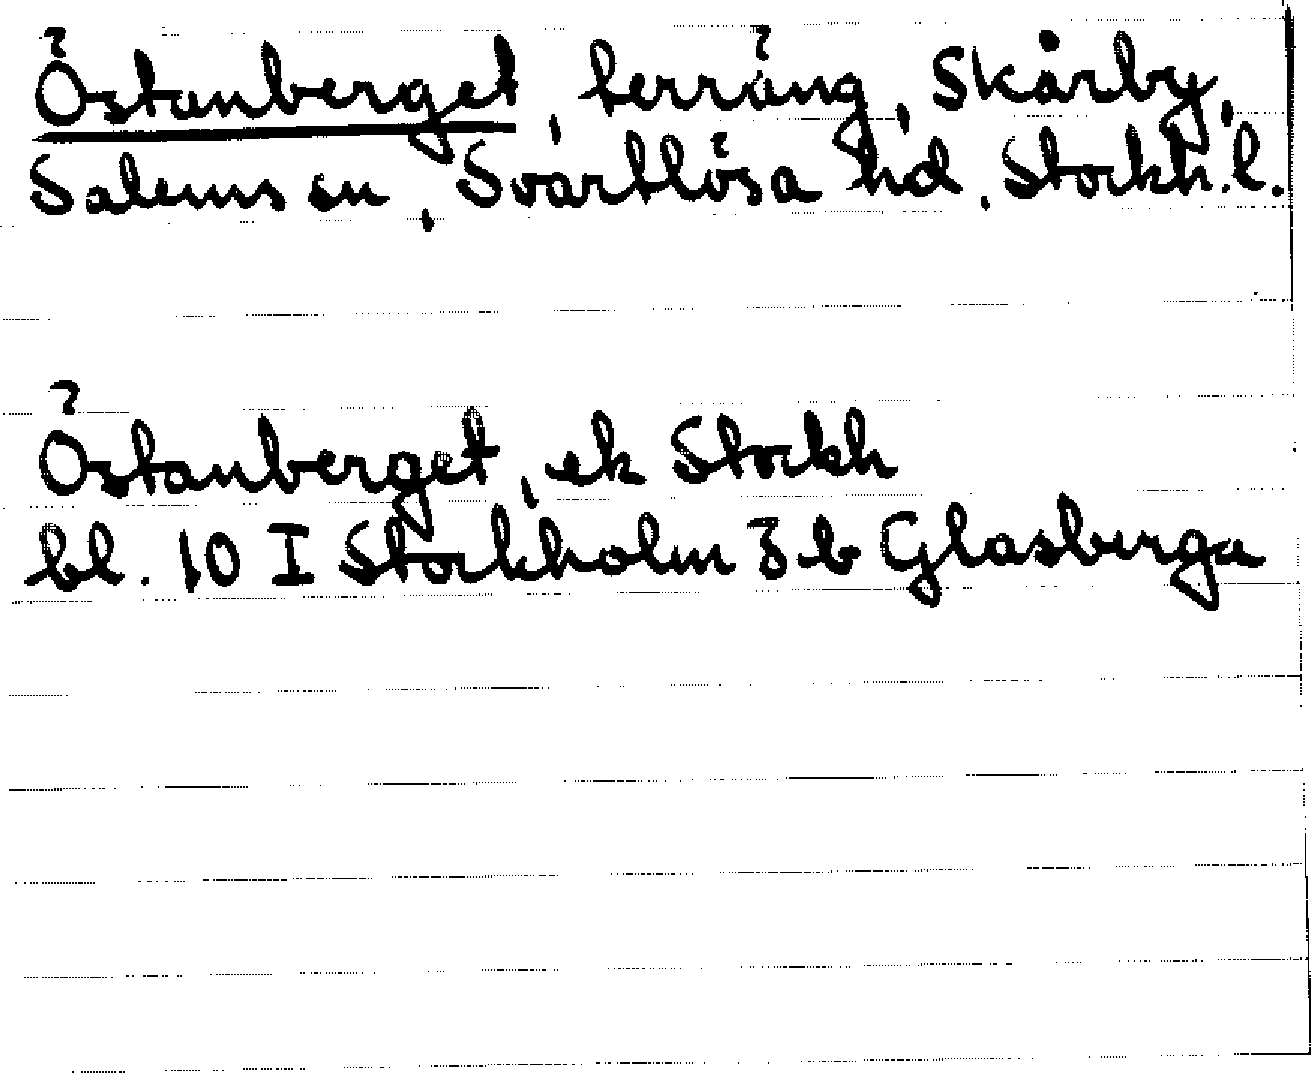 Östanberget, terräng, Skårby,
Salems sn, Svartlösa hd, Stockh.l.
Östanberget, ek Stockh
bl. 10 I Stockholm 3 b Glasberga